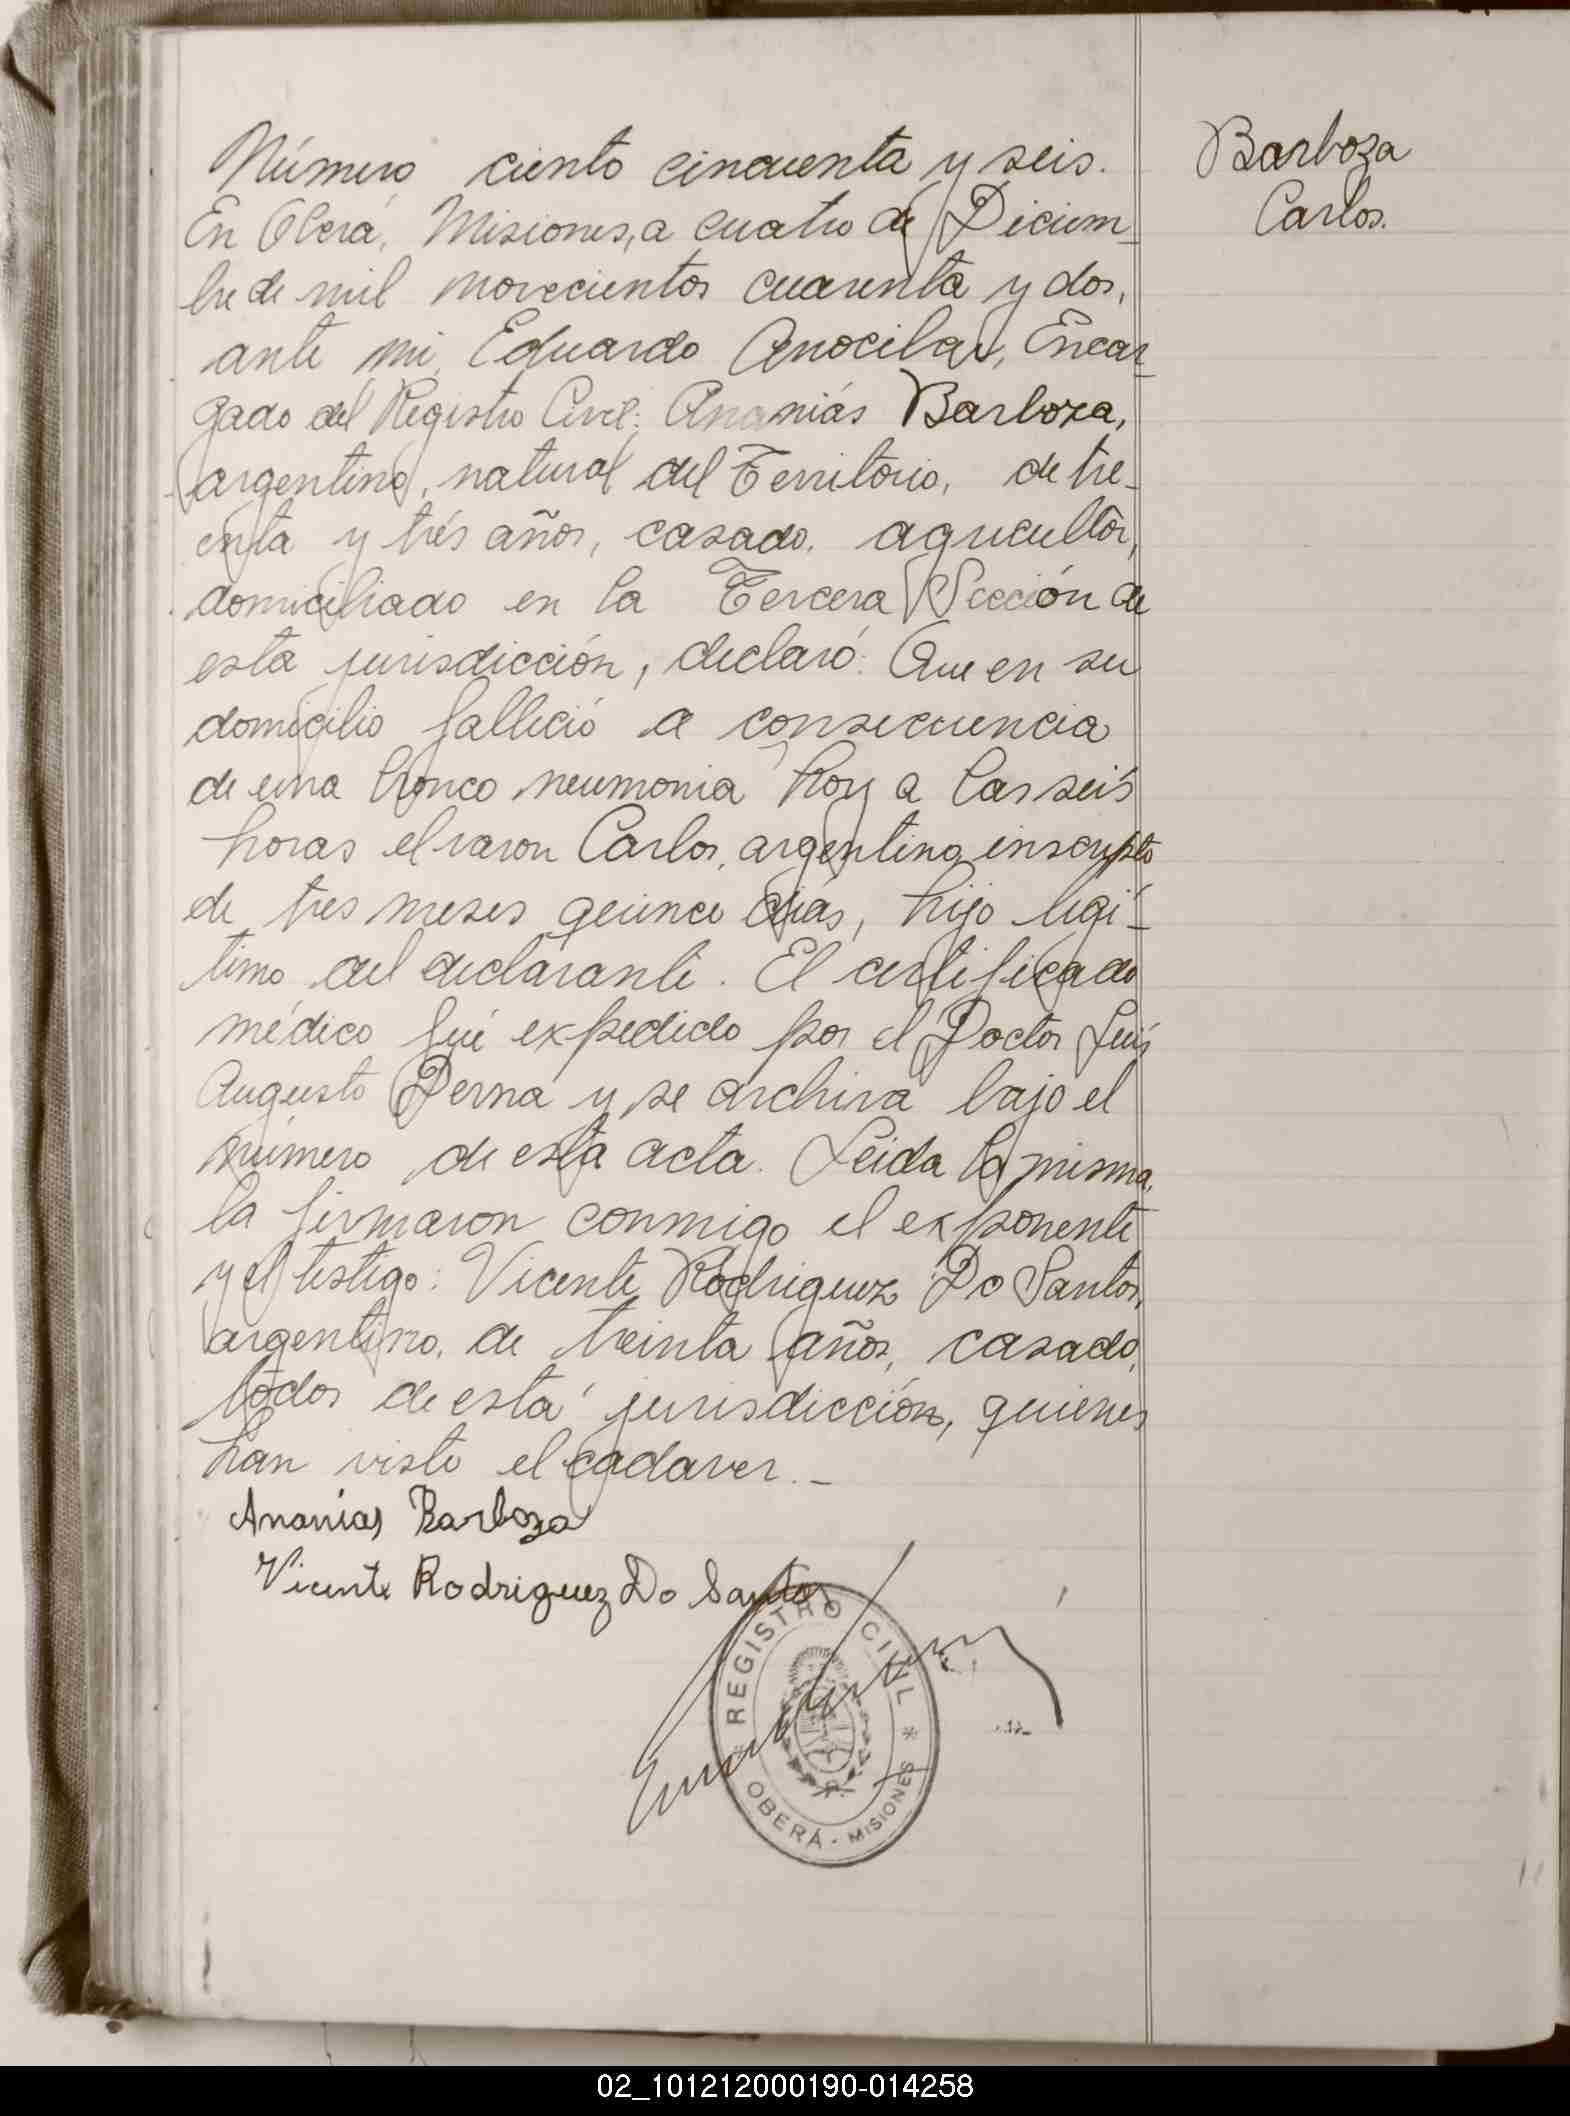 Número ciento cincuenta y seis.
En Oberá, Misiones, a cuatro de Diciem-
bre de mil novecientos cuarenta y dos,
ante mi, Eduardo Anocibar, Encar-
gado del Registro Civil: Ananiás Barboza,
argentino, natural del Territorio, de tre-
inta y trés años, casado, agricultor,
domiciliado en la Tercera Sección de
esta jurisdicción, declaró: Que en su
domicilio falleció a consecuencia
de una bronco neumonia hoy a las seis
horas el varon Carlos, argentino, inscripto
de tres meses quince dias, hijo legi-
timo del declarante. El certificado
médico fué expedido por el Doctor Luis
Augusto Derna y se archiva bajo el
número de esta acta. Leida la misma,
la firmaron conmigo el exponente
y el testigo: Vicente Rodriguez Do Santos,
argentino, de treinta años, casado,
todos de esta jurisdicción, quienes
han visto el cadaver.-
Ananias Barboza
Vicente Rodriguez Do Santos
REGISTRO CIVIL
* OBERÁ - MISIONES *
Barboza
Carlos.
02_101212000190-014258